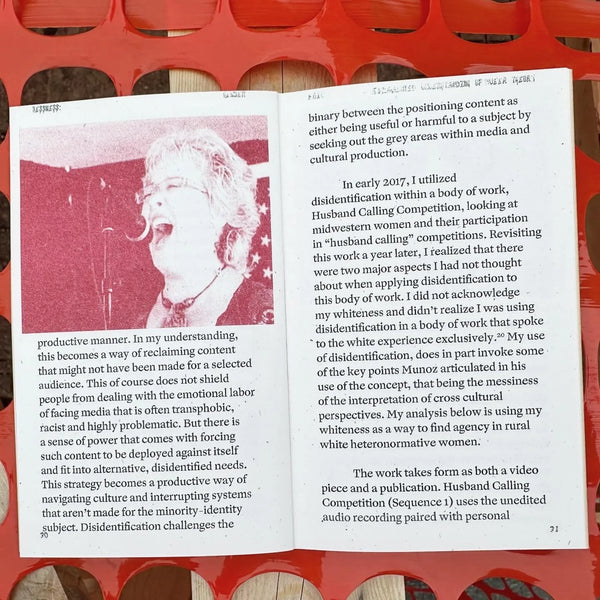 productive manner. In my understanding,
this becomes a way of reclaiming content
that might not have been made for a selected
audience. This of course does not shield
people from dealing with the emotional labor
of facing media that is often transphobic,
racist and highly problematic. But there is
a sense of power that comes with forcing
such content to be deployed against itself
and fit into alternative, disidentified needs.
This strategy becomes a productive way of
navigating culture and interrupting systems
that aren't made for the minority-identity
subject. Disidentification challenges the
30
OF QUEER THEORY
binary between the positioning content as
either being useful or harmful to a subject by
seeking out the grey areas within media and
cultural production.
In early 2017, I utilized
disidentification within a body of work,
Husband Calling Competition, looking at
midwestern women and their participation
in “husband calling” competitions. Revisiting
this work a year later, I realized that there
were two major aspects I had not thought
about when applying disidentification to
this body of work. I did not acknowledge
my whiteness and didn't realize I was using
disidentification in a body of work that spoke
to the white experience exclusively.20 My use
of disidentification, does in part invoke some
of the key points Munoz articulated in his
use of the concept, that being the messiness
of the interpretation of cross cultural
perspectives. My analysis below is using my
whiteness as a way to find agency in rural
white heteronormative women.
The work takes form as both a video
piece and a publication. Husband Calling
Competition (Sequence 1) uses the unedited
audio recording paired with personal
31